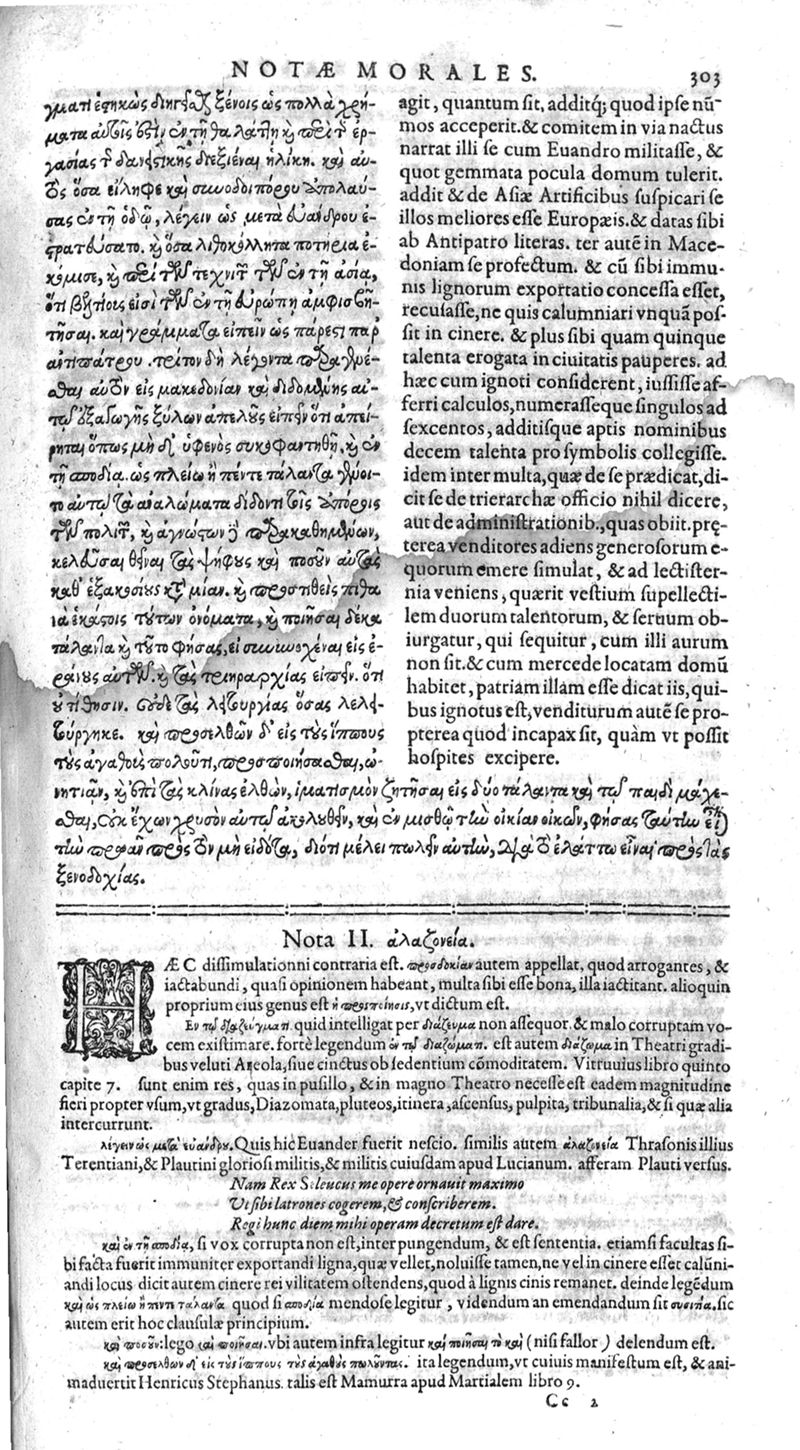 NOTÆ MORALES. 303
γματι ἑστηκὼς διηγεῖσθαι ξένοις ὡς πολλὰ χρή-
ματα αὐτοῖς ἐστὶν ἐν τῇ θαλάττῃ καὶ περὶ τ ἐρ-
γασίας τ δανειστικῆς διεξιέναι ἡλίκη. καὶ αὐ-
τὸς ὅσα εἴληφε καὶ συνοδοιπόρου ἀπολαύ-
σας ἐν τῇ ὁδῷ, λέγειν ὡς μετὰ εὐάνδρου ἐ-
στρατεύσατο. καὶ ὅσα λιθοκόλλητα ποτήρια ἐ-
κόμισε, καὶ περὶ τῶν τεχνιτ τῶν ἐν τῇ ἀσία,
ὅτι βελτίους εἰσὶ τῶν ἐν τῇ εὐρώπῃ ἀμφισβη-
τῆσαι. καὶ γράμματα εἰπεῖν ὡς πάρεστι παρ
ἀντιπάτρου. τρίτον δὴ λέγοντα παραγενέ-
σθαι αὐτὸν εἰς μακεδονίαν καὶ διδομένης αὐ-
τῷ ἐξαγωγῆς ξύλων ἀτελοῦς εἰπεῖν ὅτι ἀπεί-
ρηται ὅπως μὴ δι' ὑφενὸς συκοφαντηθῇ. καὶ ἐν
τῇ σποδιᾷ. ὡς πλείω ἢ πέντε τάλαντα γένοι-
το αὐτῷ τὰ ἀναλώματα διδόντι τοῖς ἀπόροις
τῶν πολιτ, καὶ ἀγνώστων δὲ παρακαθημένων,
κελεῦσαι θεῖναι τὰς ψήφους καὶ ποσοῦν αὐτὰς
καθ' ἑξακοσίους κατὰ μίαν. καὶ προστιθεὶς πιθα
νὰ ἑκάστοις τούτων ὀνόματα, καὶ ποιῆσαι δέκα
τάλαντα καὶ τοῦτο φήσας, εἰσενηνοχέναι εἰς ἐ-
ράνους αὐτῶν. καὶ τὰς τριηραρχίας εἰπεῖν. ὅτι
οὐ τίθησιν. οὐδὲ τὰς λειτουργίας ὅσας λελει-
τούργηκε. καὶ προσελθὼν δ' εἰς τοὺς ἵππους
τοὺς ἀγαθοὺς πολοῦτι, προσποιήσασθαι, ὠ-
agit, quantum sit, additq́; quod ipse nū-
mos acceperit. & comitem in via nactus
narrat illi se cum Euandro militasse, &
quot gemmata pocula domum tulerit.
addit & de Asiæ Artificibus suspicari se
illos meliores esse Europæis. & datas sibi
ab Antipatro literas. ter autē in Mace-
doniam se profectum. & cū sibi immu-
nis lignorum exportatio concessa esset,
recusasse, ne quis calumniari vnquā pos-
sit in cinere. & plus sibi quam quinque
talenta erogata in ciuitatis pauperes. ad
hæc cum ignoti considerent, iussisse af-
ferri calculos, numerasseque singulos ad
sexcentos, additisque aptis nominibus
decem talenta pro symbolis collegisse.
idem inter multa, quæ de se prædicat, di-
cit se de trierarchæ officio nihil dicere,
aut de administrationib., quas obiit. prę-
terea venditores adiens generosorum e-
quorum emere simulat, & ad lectister-
nia veniens, quærit vestium supellecti-
lem duorum talentorum, & seruum ob-
iurgatur, qui sequitur, cum illi aurum
non sit. & cum mercede locatam domū
habitet, patriam illam esse dicat iis, qui-
bus ignotus est, venditurum autē se pro-
pterea quod incapax sit, quàm vt possit
hospites excipere.
νητιᾶν, καὶ ἐπὶ τὰς κλίνας ἐλθὼν, ἱματισμὸν ζητῆσαι εἰς δύο τάλαντα καὶ τῷ παιδὶ μάχε-
σθαι, οὐκ ἔχων χρυσὸν αὐτῷ ἀκολουθεῖν, καὶ ἐν μισθῷ τὴν οἰκίαν οἰκῶν, φήσας ταύτην εἶ
τὴν πατρῴαν πρὸς τὸν μὴ εἰδότα, διότι μέλει πωλεῖν αὐτὴν, διὰ τὸ ἐλάττω εἶναι πρὸς τὰς
ξενοδοχίας.
Nota II. ἀλαζονεία.
HÆC dissimulationni contraria est. προσδοκίαν autem appellat, quod arrogantes, &
iactabundi, quasi opinionem habeant, multa sibi esse bona, illa iactitant. alioquin
proprium eius genus est ἡ προσποίησις, vt dictum est.
Εν τῷ διαζεύγματι. quid intelligat per διάζευμα non assequor. & malo corruptam vo-
cem existimare. fortè legendum ἐν τῷ διαζώματι. est autem διάζωμα in Theatri gradi-
bus veluti Areola, siue cinctus ob sedentium cōmoditatem. Vitruuius libro quinto
capite 7. sunt enim res, quas in pusillo, & in magno Theatro necesse est eadem magnitudine
fieri propter vsum, vt gradus, Diazomata, pluteos, itinera, ascensus, pulpita, tribunalia, & si quæ alia
intercurrunt.
λέγειν ὡς μετὰ εὐάνδρου. Quis hic Euander fuerit nescio. similis autem ἀλαζονεία Thrasonis illius
Terentiani, & Plautini gloriosi militis, & militis cuiusdam apud Lucianum. afferam Plauti versus.
Nam Rex Seleucus me opere ornauit maximo
Ut sibi latrones cogerem, & conscriberem.
Regi hunc diem mihi operam decretum est dare.
καὶ ἐν τῇ σποδιᾷ, si vox corrupta non est, interpungendum, & est sententia. etiamsi facultas si-
bi facta fuerit immuniter exportandi ligna, quæ vellet, noluisse tamen, ne vel in cinere esset calūni-
andi locus dicit autem cinere rei vilitatem ostendens, quod à lignis cinis remanet. deinde legēdum
καὶ ὡς πλείω ἢ πέντε τάλαντα quod si σποδιᾷ mendose legitur, videndum an emendandum sit σιτοδείᾳ. sic
autem erit hoc clausulæ principium.
καὶ ποσοῦν: lego καὶ ποιῆσαι. vbi autem infra legitur καὶ ποιῆσαι τὸ καὶ (nisi fallor) delendum est.
καὶ προσελθὼν δ' εἰς τοὺς ἵππους τοὺς ἀγαθοὺς πωλοῦντας. ita legendum, vt cuiuis manifestum est, & ani-
maduertit Henricus Stephanus. talis est Mamurra apud Martialem libro 9.
Cc 2